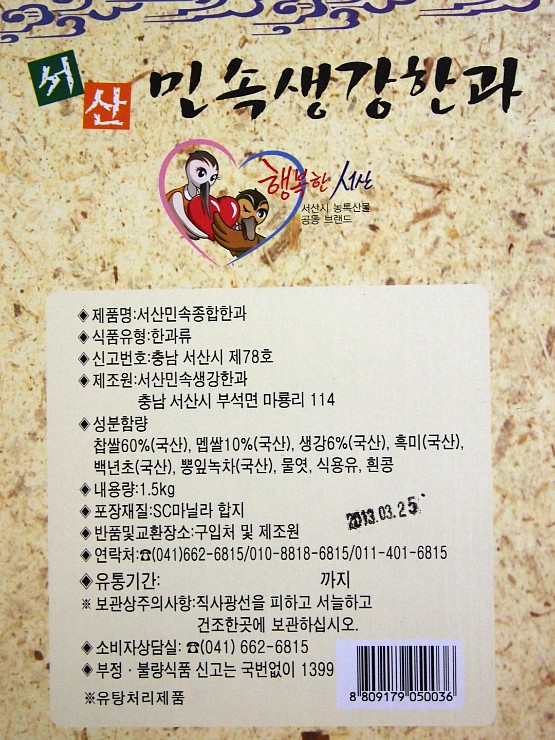 서산 민속생강한과
행복한 서산
서산시 농특산물
공동 브랜드
◈제품명:서산민속종합한과
◈식품유형:한과류
◈신고번호:충남 서산시 제78호
◈제조원:서산민속생강한과
충남 서산시 부석면 마룡리 114
◈성분함량
찹쌀60%(국산), 멥쌀10%(국산), 생강6%(국산), 흑미(국산),
백년초(국산), 뽕잎녹차(국산), 물엿, 식용유, 흰콩
◈내용량:1.5kg
◈포장재질:SC마닐라 합지
2013.03.25
◈반품및교환장소:구입처 및 제조원
◈연락처:☎(041)662-6815/010-8818-6815/011-401-6815
◈유통기간: 까지
※ 보관상주의사항:직사광선을 피하고 서늘하고
건조한곳에 보관하십시오.
◈소비자상담실: ☎(041) 662-6815
◈부정·불량식품 신고는 국번없이 1399
※유탕처리제품
8 809179 050036